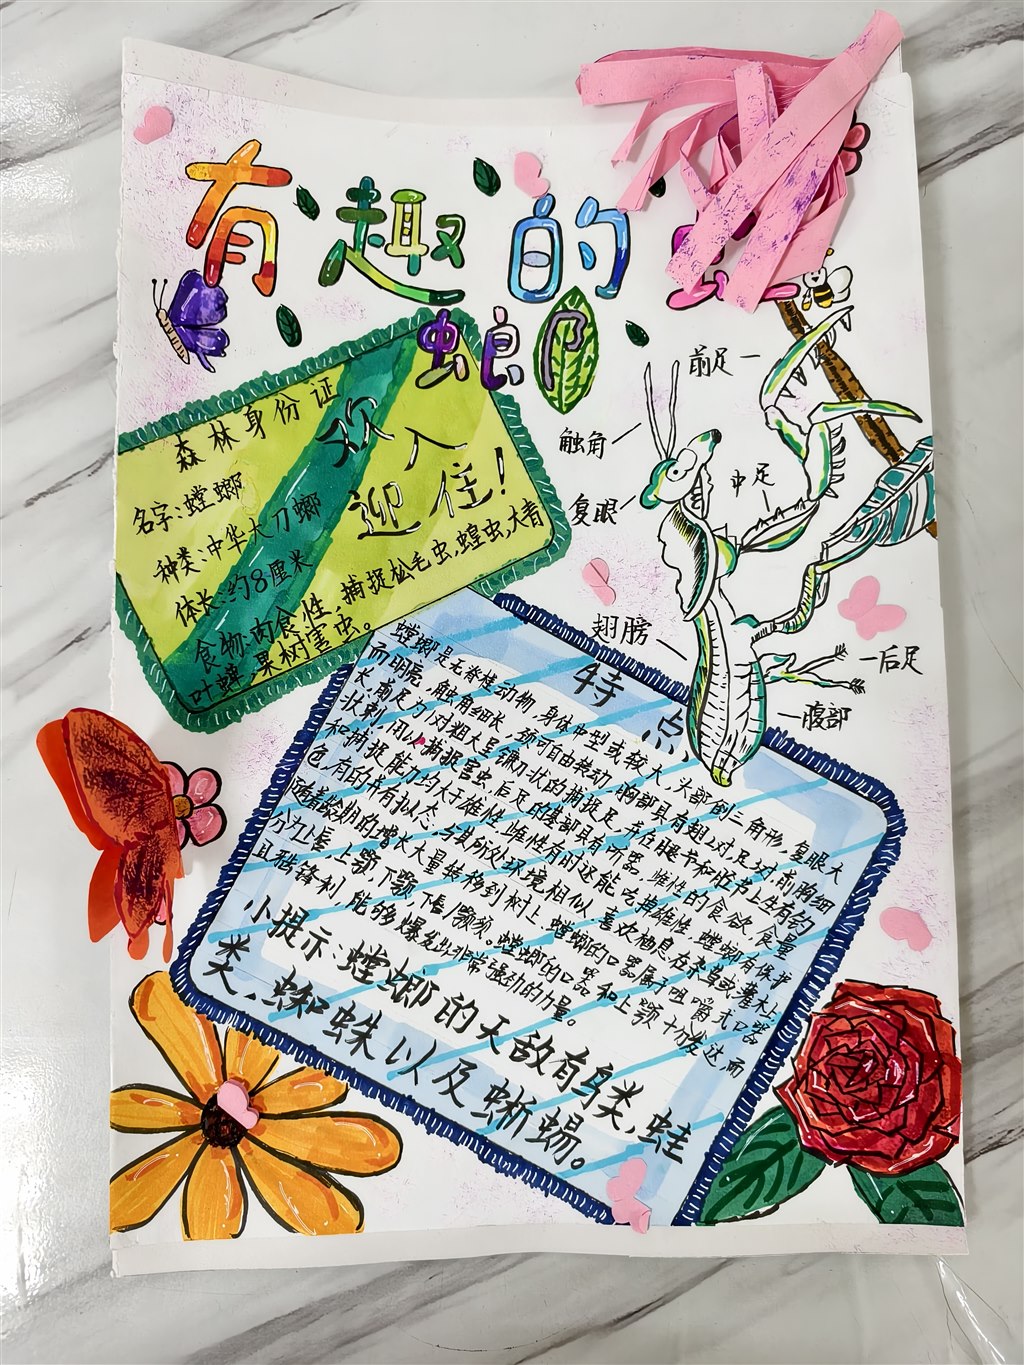 有趣的
螂
森林身份证
欢迎入住!
名字:螳螂
种类:中华大刀螂
体长:约8厘米
食物:肉食性,捕捉松毛虫,蝗虫,大青
叶蝉,果树害虫。
前足
触角
中足
复眼
翅膀
后足
腹部
特点
螳螂是无脊椎动物,身体中型或较大,头部倒三角形,复眼大
而明亮,触角细长,颈可自由转动,胸部具有翅2对,足3对,前胸细
长,前足为1对粗大呈镰刀状的捕捉足,并在腿节和胫节上生有钩
状刺,用以捕捉害虫,后足的基部具有听器,雌性的食欲,食量
和捕捉能力均大于雄性,雌性有时还能吃掉雄性,螳螂有保护
色,有的并有拟态,与其所处环境相似,喜欢栖息在杂草或灌木上,
随着龄期的增长大量转移到树上,螳螂的口器属于咀嚼式口器
分为上唇,上颚,下颚,下唇,颚须。螳螂的口器和上颚十分发达而
且锋利,能够爆发出非常强劲的力量。
小提示:螳螂的天敌有鸟类,蛙
类,蜘蛛以及蜥蜴。